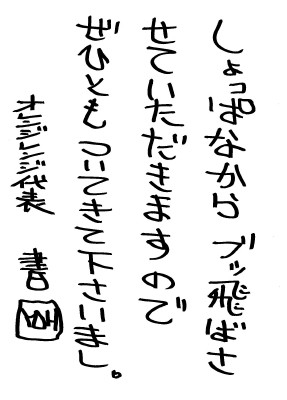 しょっぱなから ブッ飛ばさ
せていただきますので
ぜひとも ついてきて下さいまし。
オレンジレンジ代表 書
YOH